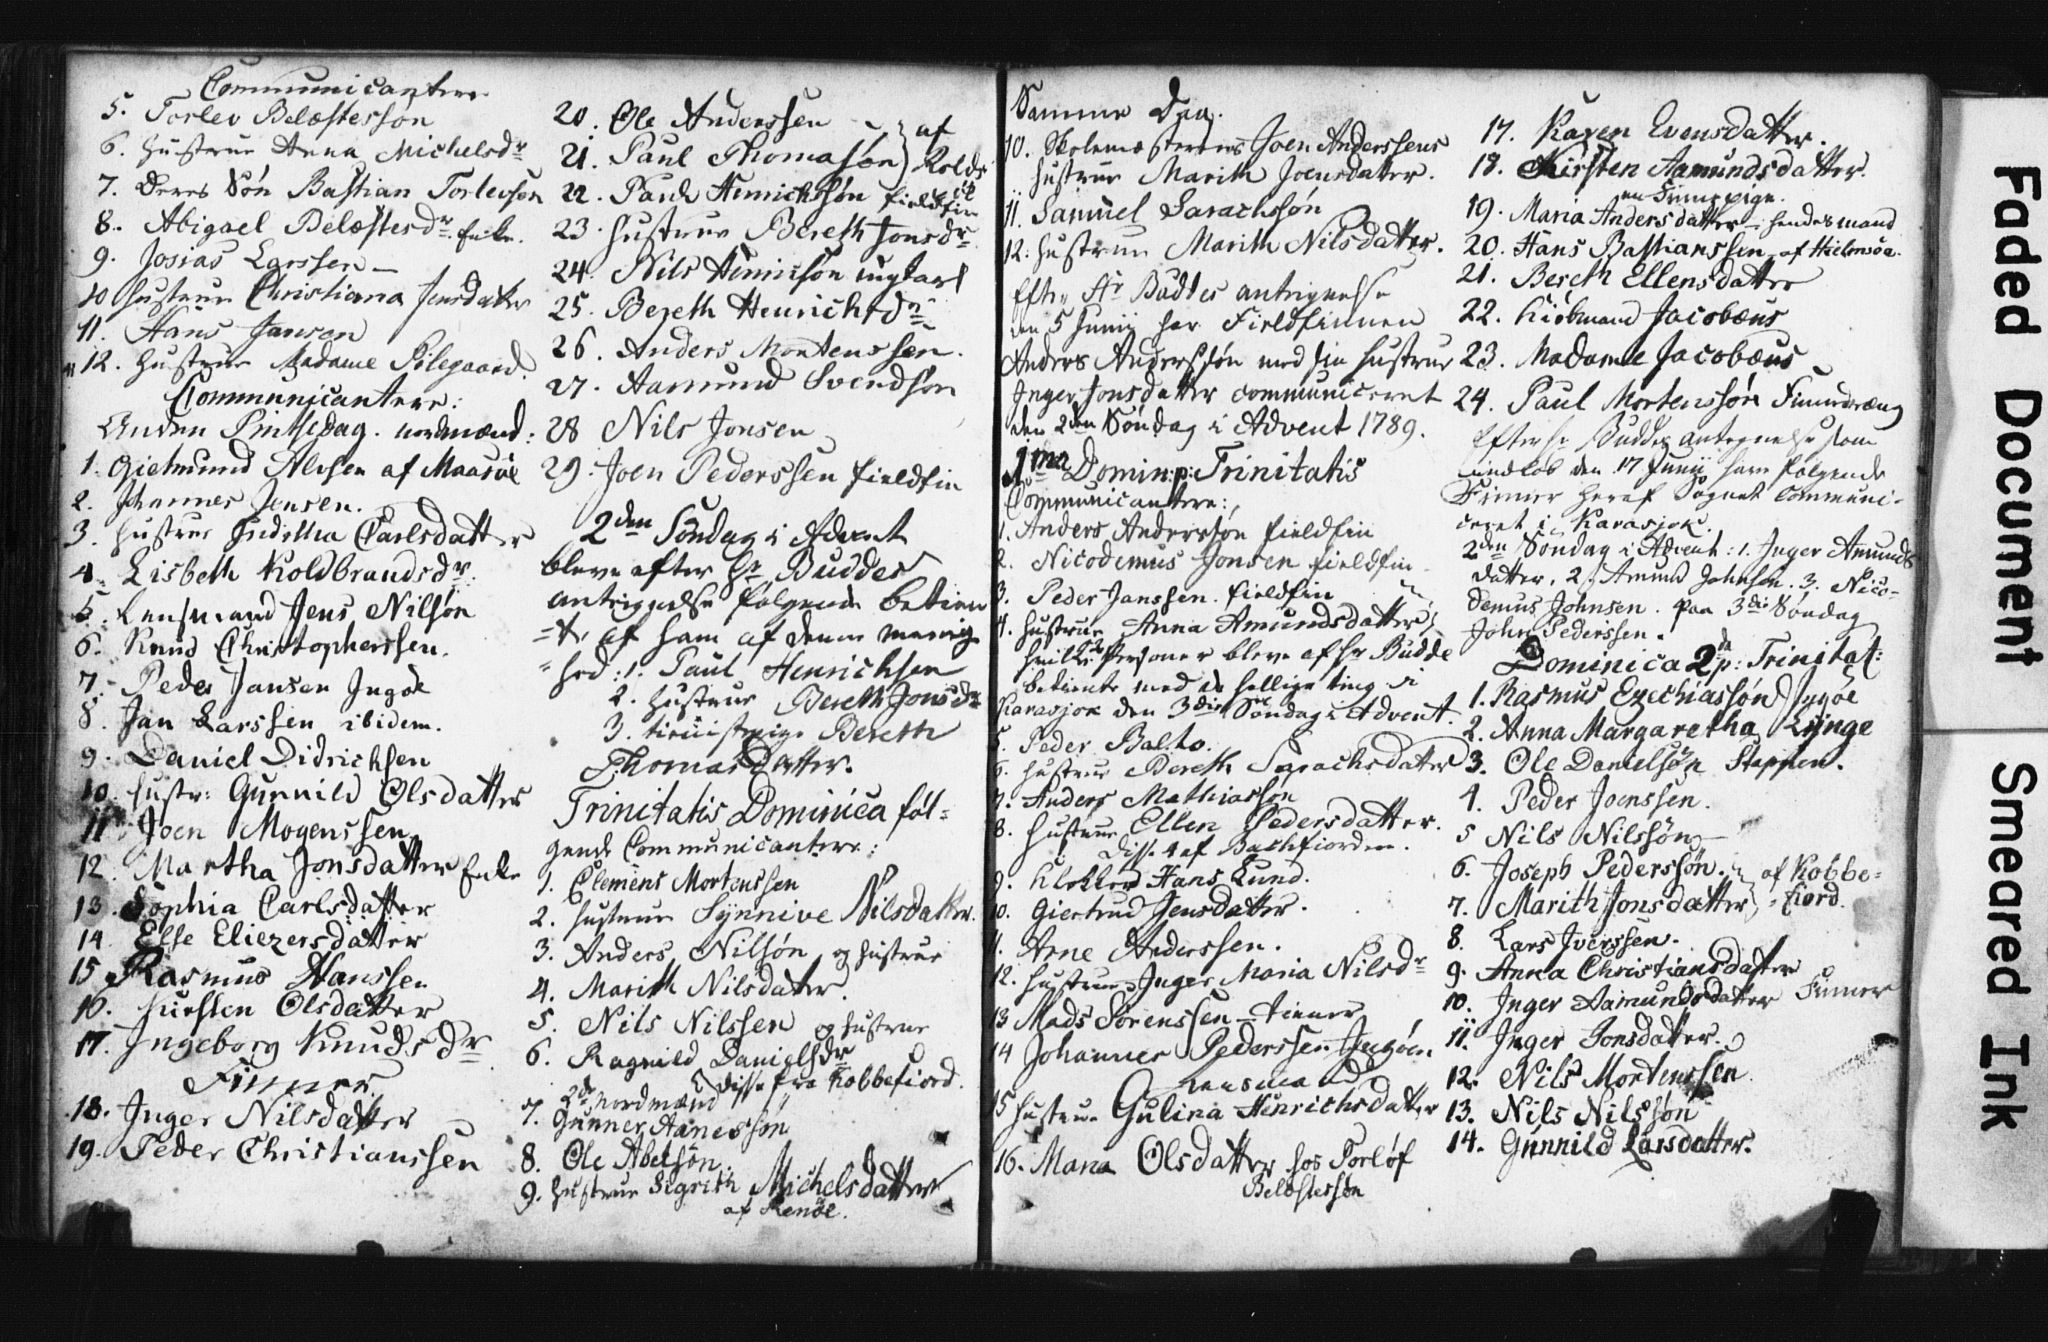 Communicantere
5. Torlev Belæstesson
6. Hustrue Anna Michelsdr
7. Deres Søn Bastian Torlevsøn
8. Abigael Belæstesdr. Enke.
9. Josias Larssen
10 Hustrue Christiana Jensdatter
11. Hans Jansen
12. Hustrue Madame Pilegaard.
Communicantere:
Anden Pintsedag. nordmænd:
1. Giertmund Alvsen af Maasøe
2. Johannes Jensen.
3. Hustrue Fridricha Carlsdatter
4. Lisbeth Koldbrandsdr.
5. Lensmand Jens Nilsøn
6. Knud Christophersen.
7. Peder Jansen Ingøe
8. Jan Larssen ibidem.
9. Daniel Didrichsen
10. Hustr: Gunnild Olsdatter
11. Joen Mogenssen
12. Martha Jonsdatter Enke
13. Sophia Carlsdatter
14. Else Eliezersdatter
15 Rasmus Hanssen
16. Kiersten Olsdatter
17. Ingeborg Knudsdr
Finner
18. Inger Nilsdatter
19. Peder Christianssen
20. Ole Anderssen
21. Paul Thomasøn af
22. Paul Henrichsøn fieldfin
23. Hustrue Bereth Jonsdr
24. Nils Henricsøn ungkarl
25. Bereth Henrichsdr
26. Anders Mortenssen.
27. Aamund Svendsøn
28 Nils Jonsen
29. Joen Pederssen fieldfin
2den Søndag i Advent
bleve after Hr Buddes
antegnelse følgende betien
=t, af ham af denne menig
=hed: 1. Paul Henrichsen
2. Hustrue Bereth Jonsdr
3. Bereth
Thomasdatter.
Trinitatis Dominica føl=
gende Communicantere:
1. Clemens Mortenssen
2. Hustrue Synnive Nilsdatter.
3. Anders Nilsøn og Hustrue
4. Marith Nilsdatter.
5. Nils Nilssen og Hustrue
6. Ragnild Danielsdr
disse fra Kobbefiord.
nordmænd
7. Gunner Aanessøn
8. Ole Abelsøn.
9. Hustrue Sigrith Michelsdatter
af Renøe.
Samme Dag.
10. Skolemesterens Joen Anderssens
Hustrue Marith Joensdatter.
11. Samuel Sarachssøn
12. Hustrue Marith Nilsdatter.
Efter Hr Buddes antegnelse
den 5 Junij har Fieldfinnen
Anders Anderssøn med sin Hustrue
Inger Jonsdatter communiceret
den 2den Søndag i Advent 1789.
1ma Domin: p: Trinitatis
Communicantere:
1. Anders Anderssøn fieldfin
2. Nicodemus Jonsen fieldfin
3. Peder Janssen fieldfin
4. Hustrue Anna Amundsdatter
Personer bleve af Hr Budde
betiente med de hellige ting i
Karasjok den 3die Søndag i Advent.
5. Peder Balto.
6. Hustrue Bereth Sarachsdatter
7. Anders Mathiassøn
8. Hustrue Ellen Pedersdatter.
Disse 4 af Bachfiorden.
9. Klokker Hans Lund.
10. Giertrud Jensdatter.
11. Arne Anderssen.
12. Hustrue Inger Maria Nilsdr
13 Mads Sørenssen
14 Johannes Pederssen Ingøen
15 Hustrue Gulina Henrichsdatter
16. Maria Olsdatter hos Torløf
Belæstessøn
17. Karen Evensdatter.
18. Kirsten Aamundsdatter.
en Finnepige.
19. Maria Andersdatter hendes mand
20. Hans Bastianssen af Hielmsøe.
21. Bereth Ellensdatter
22. Kiøbmand Jacobæus
23. Madame Jacobæus
24. Paul Mortenssøn Finnedræng
Efter Hr Buddes antegnelse som
indløb den 17 Junij have følgende
Finner heraf Sognet Communi-
ceret i Karasjok.
2den Søndag i Advent: 1. Inger Amunds
datter, 2. Amund Johnsøn. 3. Nico-
demus Johnsen. paa 3die Søndag
John Pederssen.
Dominica 2da p: Trinitat:
1. Rasmus Ezechiassønd Ingøe
2. Anna Margaretha Lynge
3. Ole Danielsøn Stappen.
4. Peder Joenssen.
5 Nils Nilssøn
6. Joseph Pederssøn. af Kobbe=
7. Marith Jonsdatter fiord.
8. Lars Iverssen.
9. Anna Christiansdatter
10. Inger Aamundsdatter Finner
11. Inger Jonsdatter.
12. Nils Mortenssen
13. Nils Nilssøn
14. Gunnild Larsdatter.
Faded Document
Smeared Ink